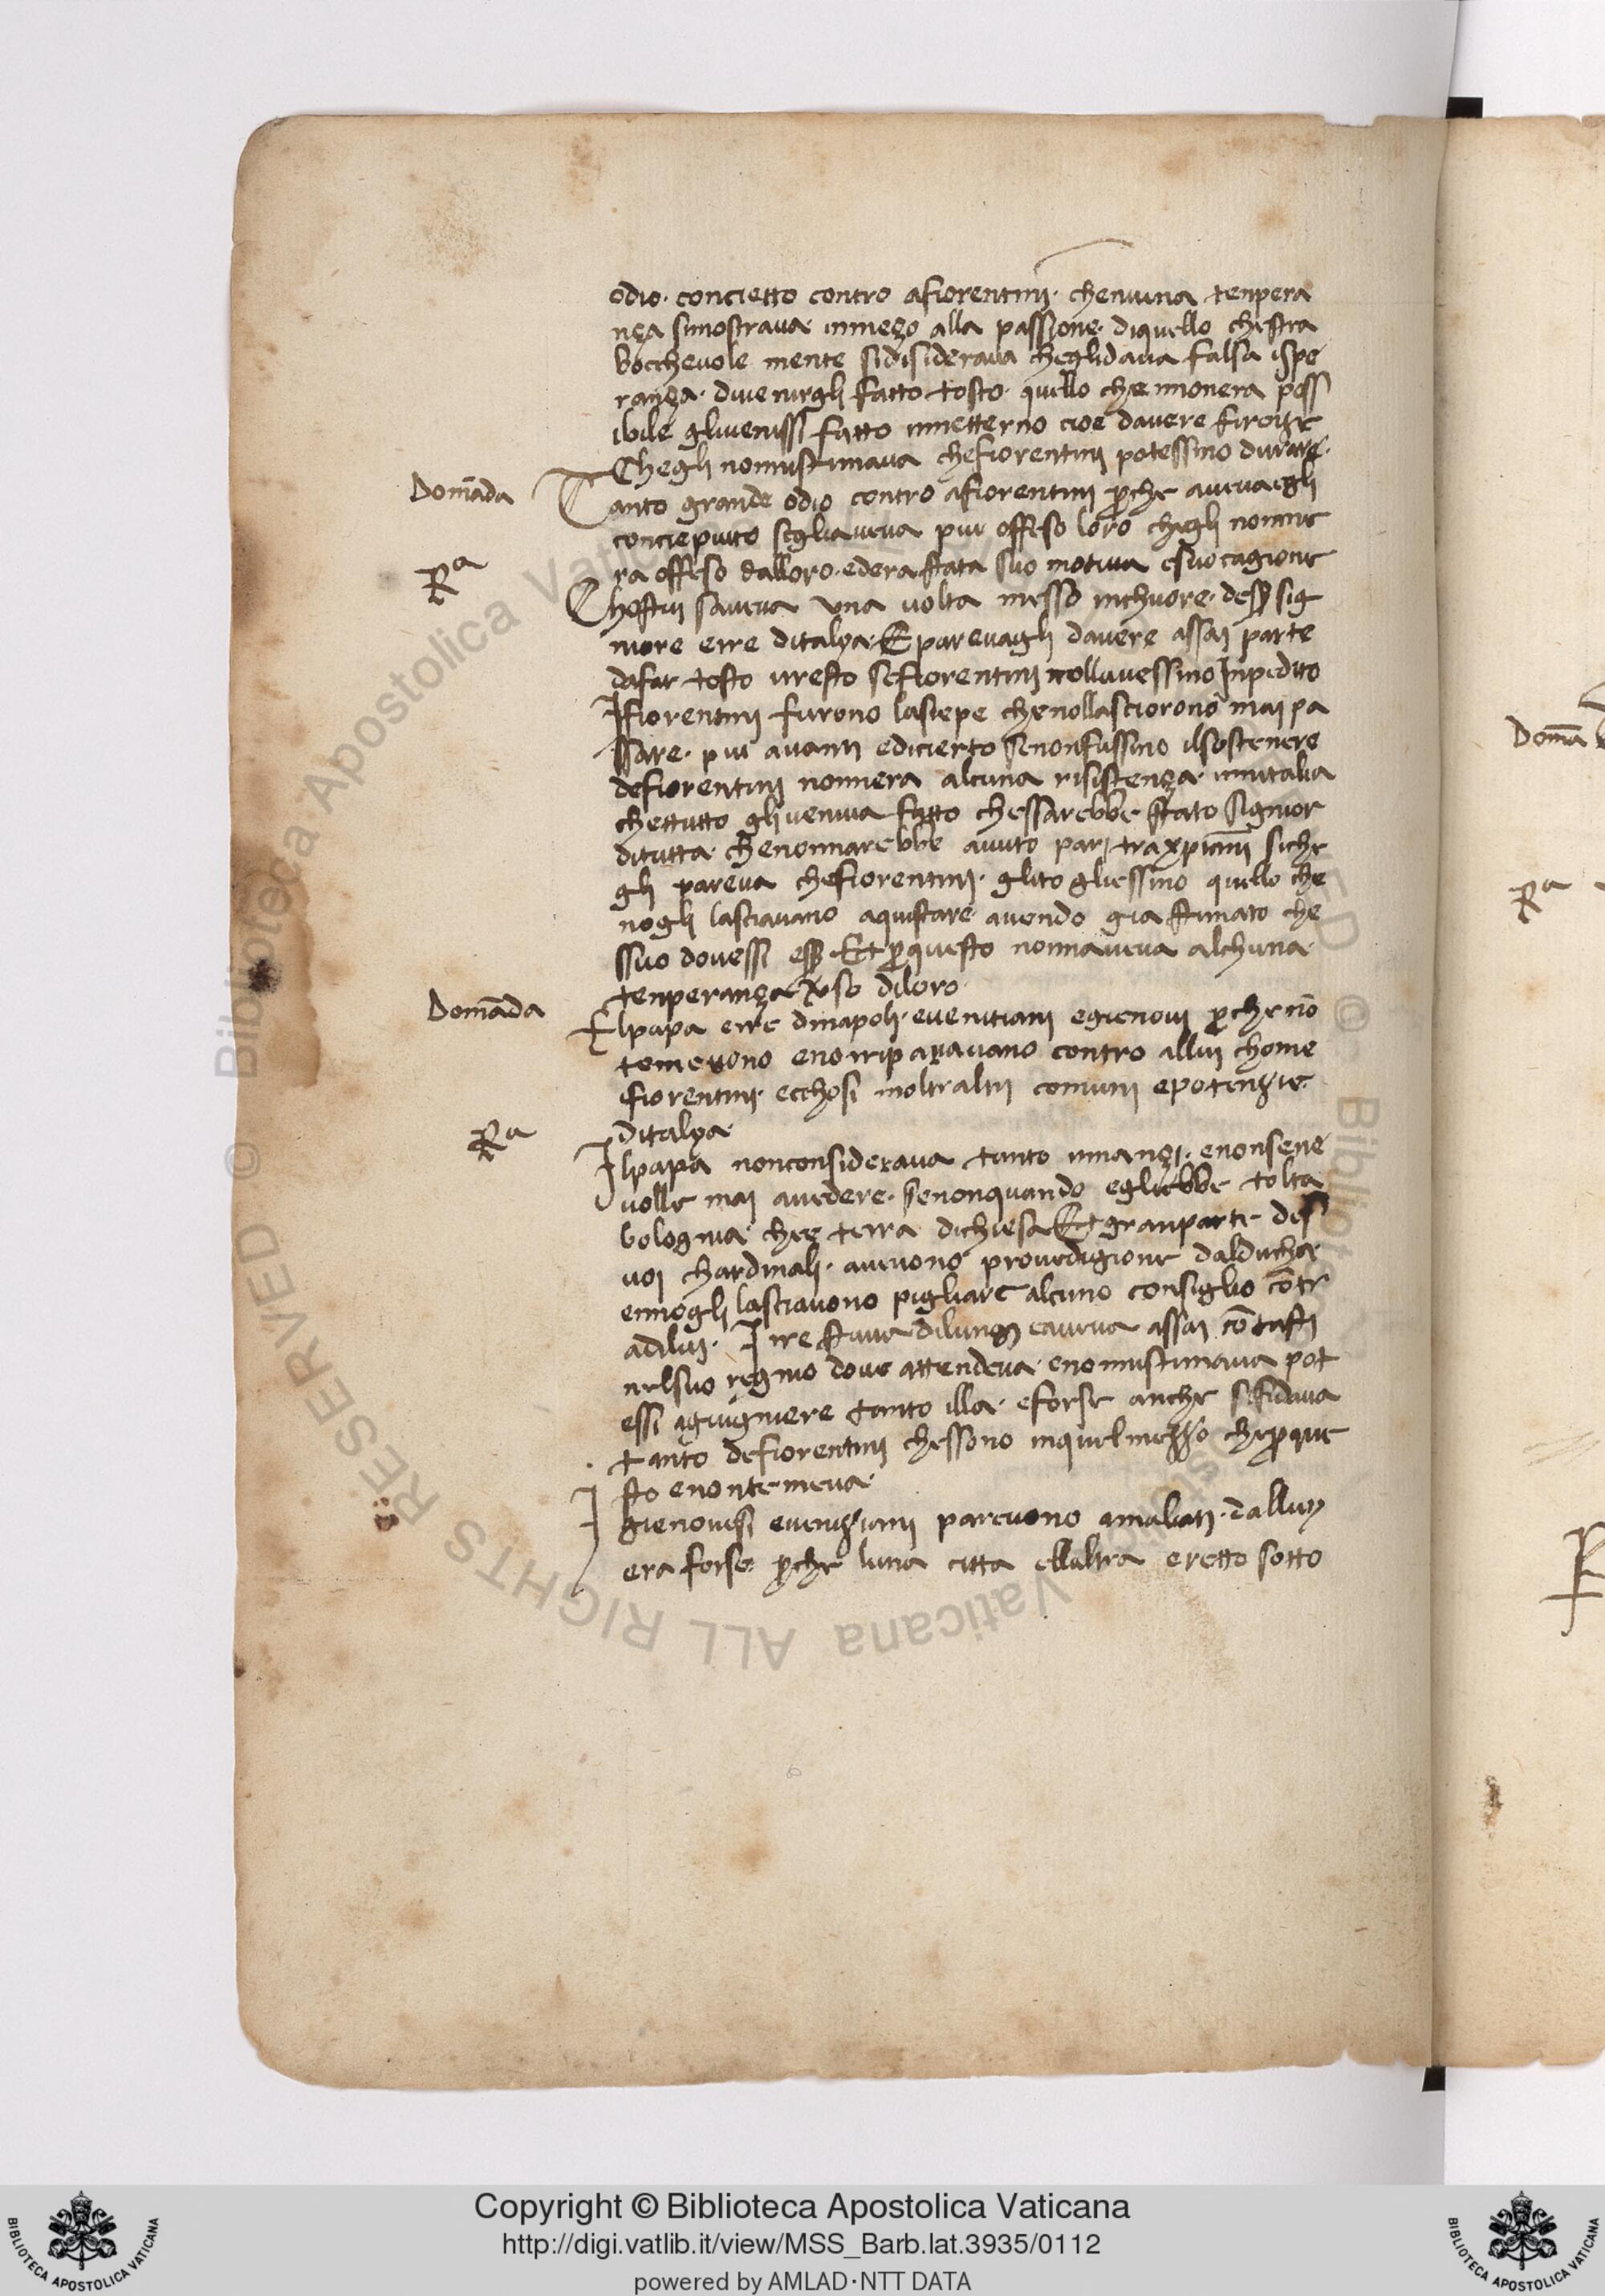 odio · concietto contro afiorentinj · cheniuna tenpera
nça simostraua inmeço alla passione · diquello chestra
bocchevole mente sidisideraua chegli daua falsa ispe
ranza · diuenirgli fatto tosto · quello che nnonera poss
ibile gliuenissi fatto innetterno cioe dauere firençe
Chegli nonnistimaua chefiorentinj potessino durare ·
Domāda
Tanto grande odio contro afiorentinj ꝑche aueuaegli
concieputo segliaueua piu offeso loro chegli nonne
ra offeso dalloro · edera stata suo motiua esuo cagione
Rᵃ
Chostui saueua una uolta messo inchuore · desꝑ sig
niore erre ditalya · E pareuagli dauere assai parte
dafar tosto ilresto sefiorentinj nollauessino Inpedito
Ifiorentinj furono lasiepe chenollasciorono mai pa
ssare · piu auanti edicierto senonfussino ilsostenere
defiorentinj nonnera alcuna risistença · innitalia
chettutto gli ueniua fatto chessarebbe stato signior
ditutta · chenonnarebbe auuto parj traxpianj siche
gli pareua chefiorentinj · glito gliessino quello che
nogli lasciauano aquistare auendo gia stimato che
ssuo douessi esꝑ · Et ꝑquesto nonnaueua alchuna
tenperança uerso diloro
Domāda
Elpapa erre dinapoli · euenitiani egienoui ꝑche nō
temeuono enorriparauano contro allui chome
fiorentinj · ecchosi moltraltri comuni epotenzie
ditalya ·
Rᵃ
Ilpapa nonconsideraua tanto innançi · enonsene
uolle mai auedere · senonquando egliebbe tolta
bolognia · chee terra dichiesa Et granparte des
uoi chardinali · aueuono prouedigione dalducha
ennogli lasciauono pigliare alcuno consiglio cōtr
adilui · Ire staua dilungi eaueua assai cōtasti
nelsuo regnio doue attendeua · enonnistimaua pot
essi agiugniere tanto illa · eforse anche sifidaua
tanto defiorentinj chessono inquelmezzo cheꝑque
sto enontemeua ·
I gienouesi eueniziani pareuono amaliati · dallui
era forse ꝑche luna citta ellaltra eretto sotto
Domā
Rᵃ
Copyright © Biblioteca Apostolica Vaticana
http://digi.vatlib.it/view/MSS_Barb.lat.3935/0112
powered by AMLAD·NTT DATA